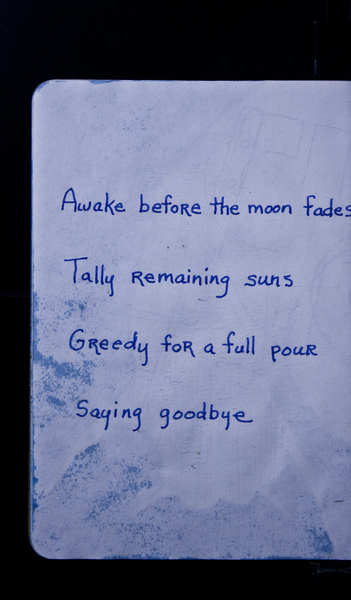 Awake before the moon fades
Tally remaining suns
Greedy for a full pour
Saying goodbye